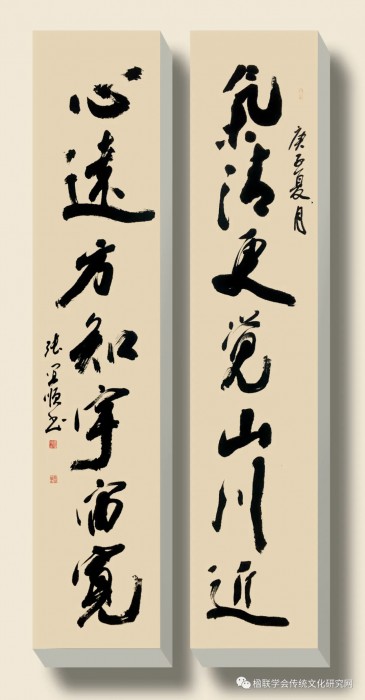 庚子夏月
氣清更覺山川近
心遠方知宇宙寬
楹联学会传统文化研究网